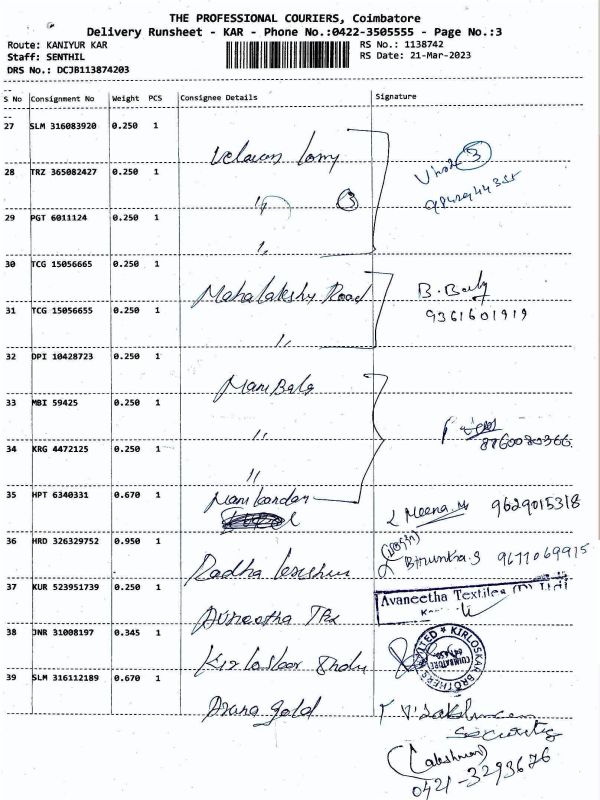 THE PROFESSIONAL COURIERS, Coimbatore
Delivery Runsheet - KAR - Phone No.:0422-3505555 - Page No.:3
Route: KANIYUR KAR
RS No.: 1138742
Staff: SENTHIL
RS Date: 21-Mar-2023
DRS No.: DCJB113874203
S No Consignment No Weight PCS Consignee Details Signature
27 SLM 316083920 0.250 1
28 TRZ 365082427 0.250 1
3
3
29 PGT 6011124 0.250 1
30 TCG 15056665 0.250 1
Mahalakshmy Road
B.
31 TCG 15056655 0.250 1
9361601919
32 DPI 10428723 0.250 1
Mani Bala
33 MBI 59425 0.250 1
8760080366
34 KRG 4472125 0.250 1
35 HPT 6340331 0.670 1
Manikandan
Meena. M 9629015318
36 HRD 326329752 0.950 1
9677069915
Radha
37 KUR 523951739 0.250 1
Avaneetha Textiles (P) Ltd
Avneetha Tex
38 JNR 31008197 0.345 1
KIRLOSKAR BROTHERS LIMITED
COIMBATORE
Kirloskar
39 SLM 316112189 0.670 1
gold
Security
(Lakshman)
0421-3293676